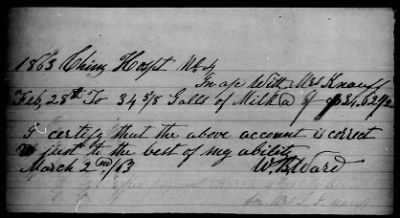 1863 Chimy Hospt No 4
In a/c With Mrs Knauff
Feb 28th To 34 5/8 Galls of Milk @
I certify that the above account is correct
& just to the best of my ability
March 2nd/63 W. B. Ward